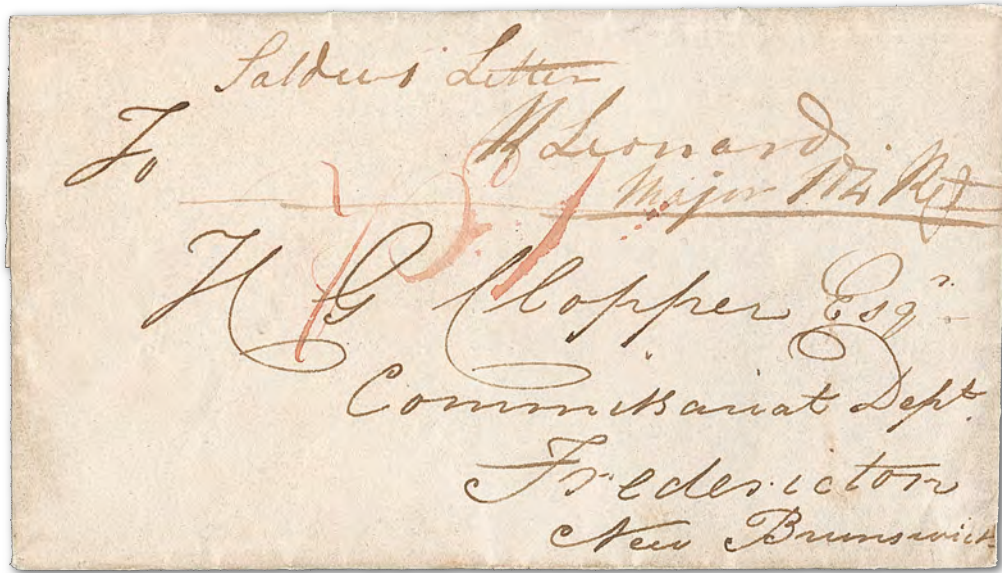 Soldiers Letter
To
R Leonard
Major 104 Rgt
H G Clopper Esqr
Commissariat Dept.
Fredericton
New Brunswick